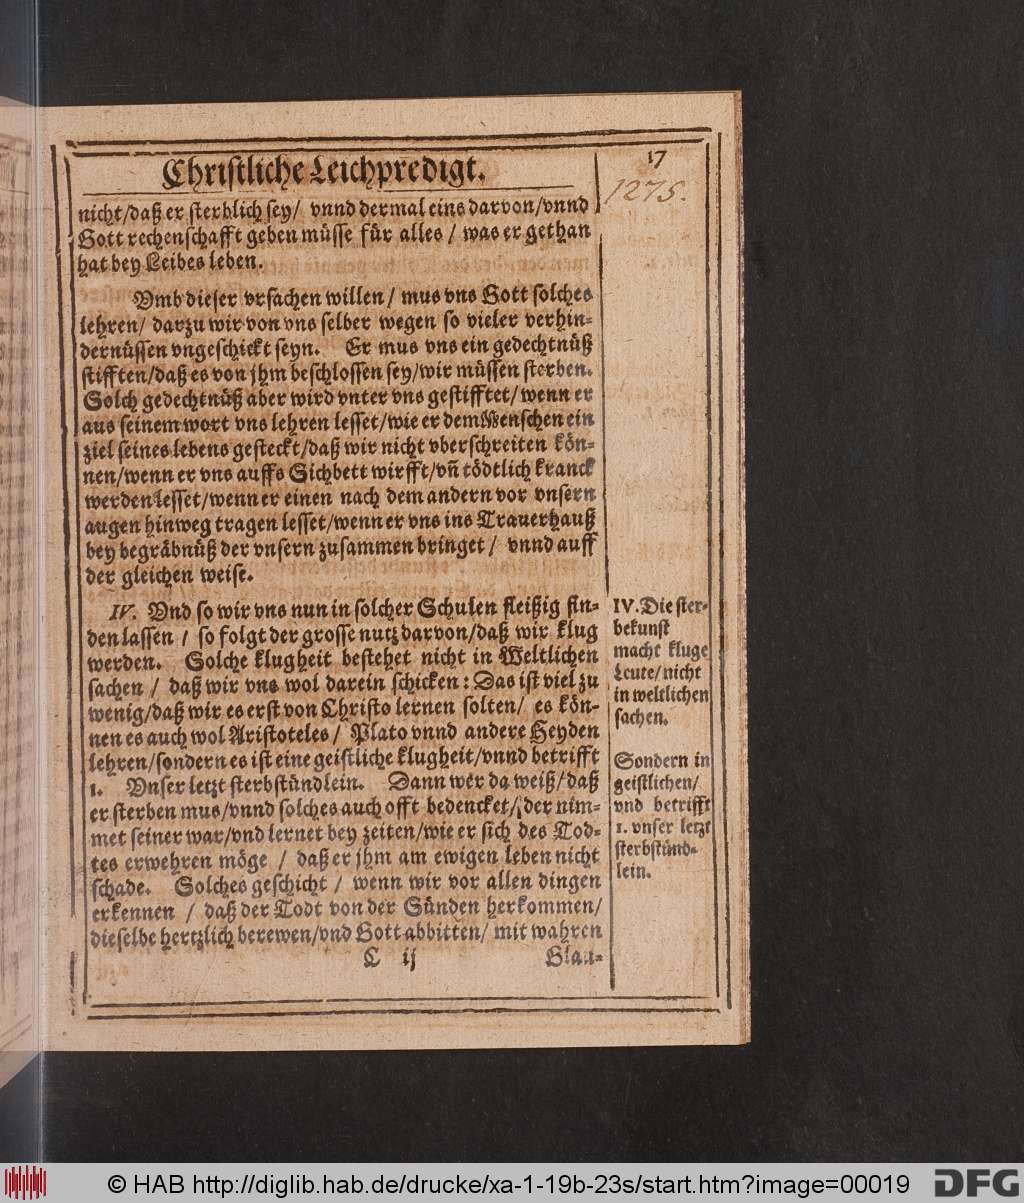 Christliche Leichpredigt.
17
1275.
nicht/daß er sterblich sey/ vnnd dermal eins darvon/vnnd
Gott rechenschafft geben müsse für alles / was er gethan
hat bey Leibes leben.
Vmb dieser vrsachen willen / mus vns Gott solches
lehren/ darzu wir von vns selber wegen so vieler verhin-
dernüssen vngeschickt seyn. Er mus vns ein gedechtnüß
stifften/daß es von jhm beschlossen sey/wir müssen sterben.
Solch gedechtnüß aber wird vnter vns gestifftet/wenn er
aus seinem wort vns lehren lesset/wie er dem Menschen ein
ziel seines lebens gesteckt/daß wir nicht vberschreiten kön-
nen/wenn er vns auffs Sichbett wirfft/vñ tödtlich kranck
werden lesset/wenn er einen nach dem andern vor vnsern
augen hinweg tragen lesset/wenn er vns ins Trauerhauß
bey begräbnüß der vnsern zusammen bringet / vnnd auff
der gleichen weise.
IV. Vnd so wir vns nun in solcher Schulen fleißig fin-
den lassen / so folgt der grosse nutz darvon/daß wir klug
werden. Solche klugheit bestehet nicht in Weltlichen
sachen / daß wir vns wol darein schicken: Das ist viel zu
wenig/daß wir es erst von Christo lernen solten/ es kön-
nen es auch wol Aristoteles / Plato vnnd andere Heyden
lehren/sondern es ist eine geistliche klugheit/vnnd betrifft
1. Vnser letzt sterbstündlein. Dann wer da weiß/daß
er sterben mus/vnnd solches auch offt bedencket/ der nim-
met seiner war/vnd lernet bey zeiten/wie er sich des Tod-
tes erwehren möge / daß er jhm am ewigen leben nicht
schade. Solches geschicht / wenn wir vor allen dingen
erkennen / daß der Todt von der Sünden herkommen/
dieselbe hertzlich berewen/vnd Gott abbitten/ mit wahren
C ij
Glau-
IV. Die ster-
bekunst
macht kluge
Leute/nicht
in weltlichen
sachen.
Sondern in
geistlichen/
vnd betrifft
1. vnser letzt
sterbstünd-
lein.
© HAB http://diglib.hab.de/drucke/xa-1-19b-23s/start.htm?image=00019
DFG